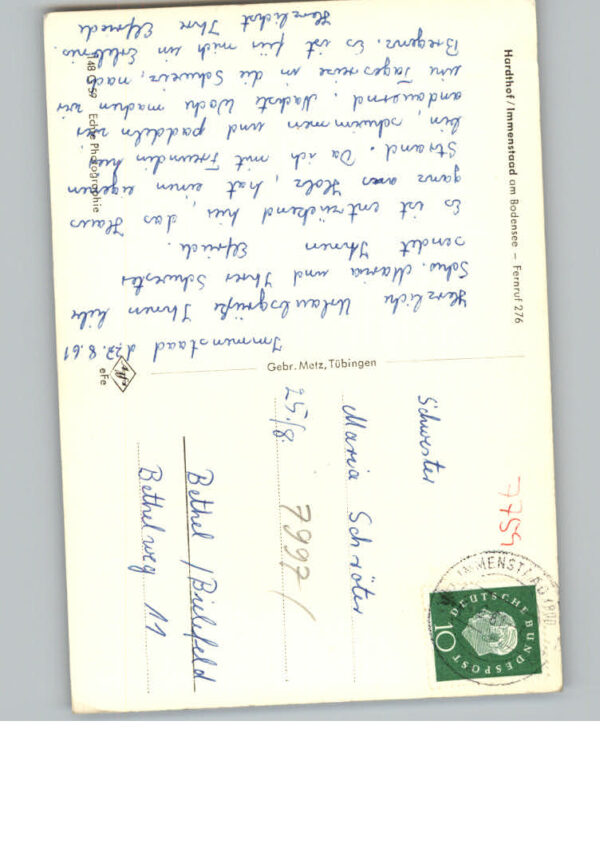 Hardthof / Immenstaad am Bodensee – Fernruf 276
Immenstaad d. 22.8.61
Herzliche Urlaubsgrüße Ihnen liebe
Schw. Maria und Ihrer Schwester
sendet Ihnen Elfriede.
Es ist entzückend hier, das Haus
ganz aus Holz, hat einen eigenen
Strand. Da ich mit Freundin hier
bin, schwimmen und paddeln wir
andauernd. Nächste Woche machen wir
eine Tagesreise in die Schweiz, nach
Bregenz. Es ist für mich ein Erlebnis.
Herzlichst Ihre Elfriede
48 C 59 Echte Photographie
Gebr. Metz, Tübingen
eFe
7759
Schwester
Maria Schröter
25./8.
7997/
Bethel / Bielefeld
Bethelweg 11
IMMENSTAAD
DEUTSCHE BUNDESPOST
10